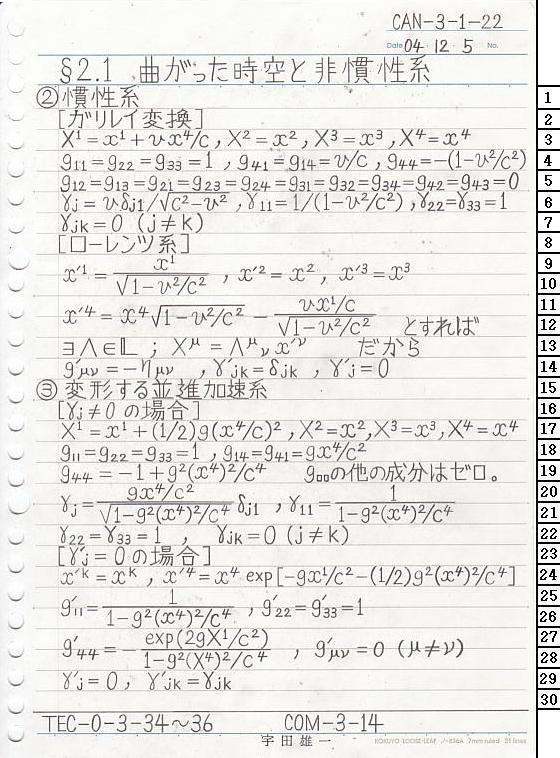 CAN-3-1-22
Date 04・12・5 No.
§2.1 曲がった時空と非慣性系
②慣性系
[ガリレイ変換]
X¹=x¹+υx⁴/c, X²=x², X³=x³, X⁴=x⁴
g₁₁=g₂₂=g₃₃=1, g₄₁=g₁₄=υ/c, g₄₄=-(1-υ²/c²)
g₁₂=g₁₃=g₂₁=g₂₃=g₂₄=g₃₁=g₃₂=g₃₄=g₄₂=g₄₃=0
γⱼ=υδⱼ₁/√(c²-υ²), γ₁₁=1/(1-υ²/c²), γ₂₂=γ₃₃=1
γⱼₖ=0 (j≠k)
[ローレンツ系]
x'¹=x¹/√(1-υ²/c²), x'²=x², x'³=x³
x'⁴=x⁴√(1-υ²/c²)-(υx¹/c)/√(1-υ²/c²) とすれば
∃Λ∈𝕃; X^μ=Λ^μ_ν x'^ν だから
g'_μν=-η_μν, γ'ⱼₖ=δⱼₖ, γ'ⱼ=0
③変形する並進加速系
[γⱼ≠0の場合]
X¹=x¹+(1/2)g(x⁴/c)², X²=x², X³=x³, X⁴=x⁴
g₁₁=g₂₂=g₃₃=1, g₁₄=g₄₁=gx⁴/c²
g₄₄=-1+g²(x⁴)²/c⁴ g□□の他の成分はゼロ。
γⱼ=(gx⁴/c²)/√(1-g²(x⁴)²/c⁴) δⱼ₁, γ₁₁=1/(1-g²(x⁴)²/c⁴)
γ₂₂=γ₃₃=1, γⱼₖ=0 (j≠k)
[γ'ⱼ=0の場合]
x'^k=x^k, x'⁴=x⁴ exp[-gx¹/c²-(1/2)g²(x⁴)²/c⁴]
g'₁₁=1/(1-g²(x⁴)²/c⁴), g'₂₂=g'₃₃=1
g'₄₄=-exp(2gX¹/c²)/(1-g²(X⁴)²/c⁴), g'_μν=0 (μ≠ν)
γ'ⱼ=0, γ'ⱼₖ=γⱼₖ
TEC-0-3-34～36 COM-3-14
宇田雄一
KOKUYO LOOSE-LEAF ノ-836A 7mm ruled 31 lines
1
2
3
4
5
6
7
8
9
10
11
12
13
14
15
16
17
18
19
20
21
22
23
24
25
26
27
28
29
30